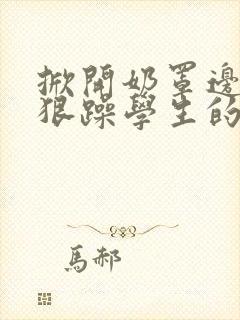 掀開奶罩邊
狠躁學生的
馬郝